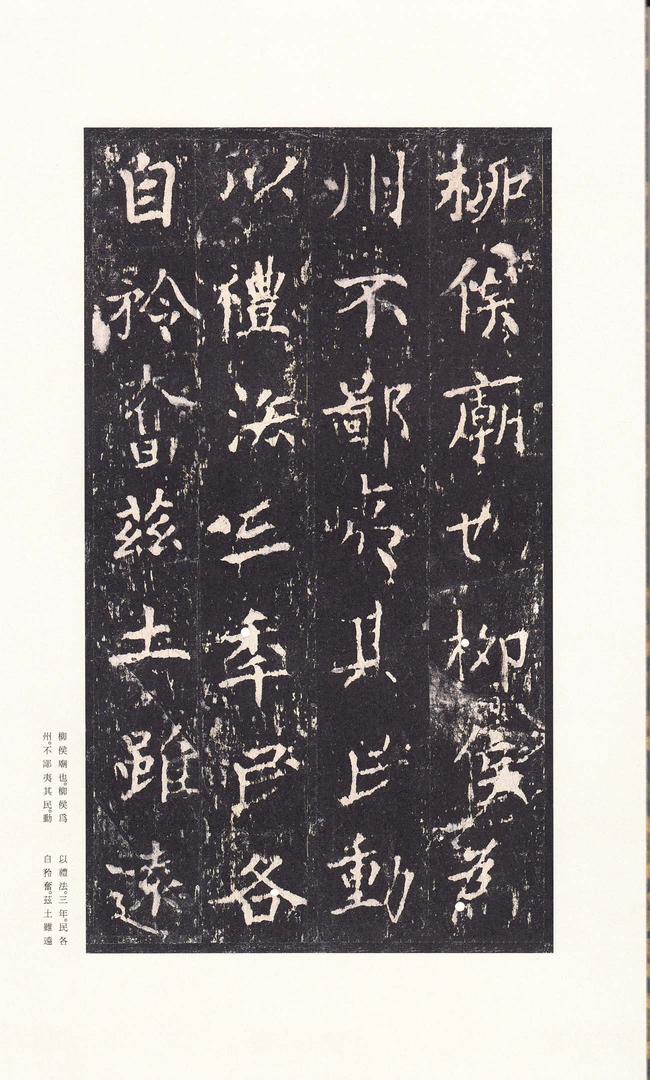 柳侯廟也柳侯為
州不鄙夷其民動
以禮法三年民各
自矜奮茲土雖遠
柳侯廟也。柳侯爲
州。不鄙夷其民。動
以禮法。三年。民各
自矜奮。茲土雖遠